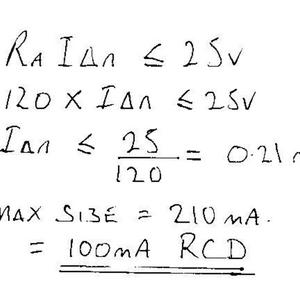 RA IΔn ≤ 25V
120 X IΔn ≤ 25V
IΔn ≤ 25/120 = 0.21
MAX SIZE = 210 mA.
= 100mA RCD